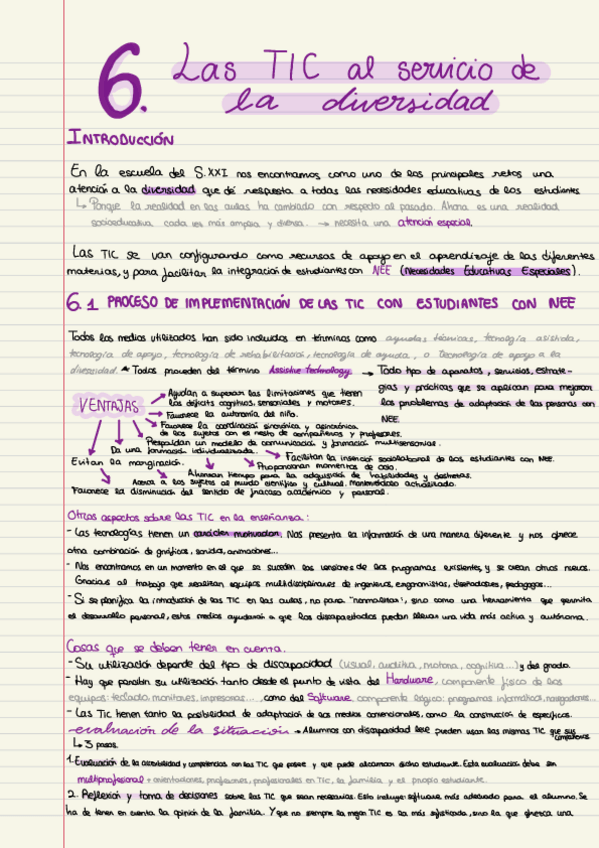 6. Las TIC al servicio de
la diversidad
INTRODUCCIÓN
En la escuela del S.XXI nos encontramos como uno de los principales retos una
atención a la diversidad que dé respuesta a todas las necesidades educativas de los estudiantes
↳ Porque la realidad en las aulas ha cambiado con respecto al pasado. Ahora es una realidad
socioeducativa cada vez más amplia y diversa. → necesita una atención especial.
Las TIC se van configurando como recursos de apoyo en el aprendizaje de las diferentes
materias, y para facilitar la integración de estudiantes con NEE (Necesidades Educativas Especiales).
6.1 PROCESO DE IMPLEMENTACIÓN DE LAS TIC CON ESTUDIANTES CON NEE
Todos los medios utilizados han sido incluidos en términos como ayudas técnicas, tecnología asistida,
tecnología de apoyo, tecnología de rehabilitación, tecnología de ayuda, o Tecnología de apoyo a la
diversidad. * Todos proceden del término Assistive technology → Todo tipo de aparatos, servicios, estrate-
gias y prácticas que se aplican para mejorar
los problemas de adaptación de las personas con
NEE.
VENTAJAS
Ayudan a superar las limitaciones que tienen
los déficits cognitivos, sensoriales y motores.
Favorece la autonomía del niño.
Favorece la coordinación sincrónica y asincrónica
de los sujetos con el resto de compañeros y profesores.
Respaldan un modelo de comunicación y formación multisensorial.
Da una formación individualizada.
Facilitan la inserción sociolaboral de los estudiantes con NEE.
Evitan la marginación.
Proporcionan momentos de ocio.
Ahorran tiempo para la adquisición de habilidades y destrezas.
Acerca a los sujetos al mundo científico y cultural. Manteniéndolo actualizado.
Favorece la disminución del sentido de fracaso académico y personal.
Otros aspectos sobre las TIC en la enseñanza:
- Las tecnologías tienen un carácter motivador. Nos presenta la información de una manera diferente y nos ofrece
otra combinación de gráficos, sonidos, animaciones...
- Nos encontramos en un momento en el que se suceden las versiones de los programas existentes, y se crean otros nuevos.
Gracias al trabajo que realizan equipos multidisciplinares de ingenieros, ergonomistas, diseñadores, pedagogos...
- Si se planifica la introducción de las TIC en las aulas, no para "normalizar", sino como una herramienta que permita
el desarrollo personal, estos medios ayudarán a que los discapacitados puedan llevar una vida más activa y autónoma.
Cosas que se deben tener en cuenta.
- Su utilización depende del tipo de discapacidad (visual, auditiva, motora, cognitiva...) y del grado.
- Hay que pensar su utilización tanto desde el punto de vista del Hardware, componente físico de los
equipos: teclado, monitores, impresoras..., como del Software, componente lógico: programas informáticos, navegadores...
- Las TIC tienen tanto la posibilidad de adaptación de los medios convencionales, como la construcción de específicos.
-evaluación de la situación → Alumnos con discapacidad leve pueden usar las mismas TIC que sus
compañeros
↳ 3 pasos.
1. Evaluación de la accesibilidad y competencias con las TIC que posee y que puede alcanzar dicho estudiante. Esta evaluación debe ser
multiprofesional → orientadores, profesores, profesionales en TIC, la familia y el propio estudiante.
2. Reflexión y toma de decisiones sobre las TIC que sean necesarias. Esto incluye: software más adecuado para el alumno. Se
ha de tener en cuenta la opinión de la familia. Y que no siempre la mejor TIC es la más sofisticada, sino la que ofrezca una